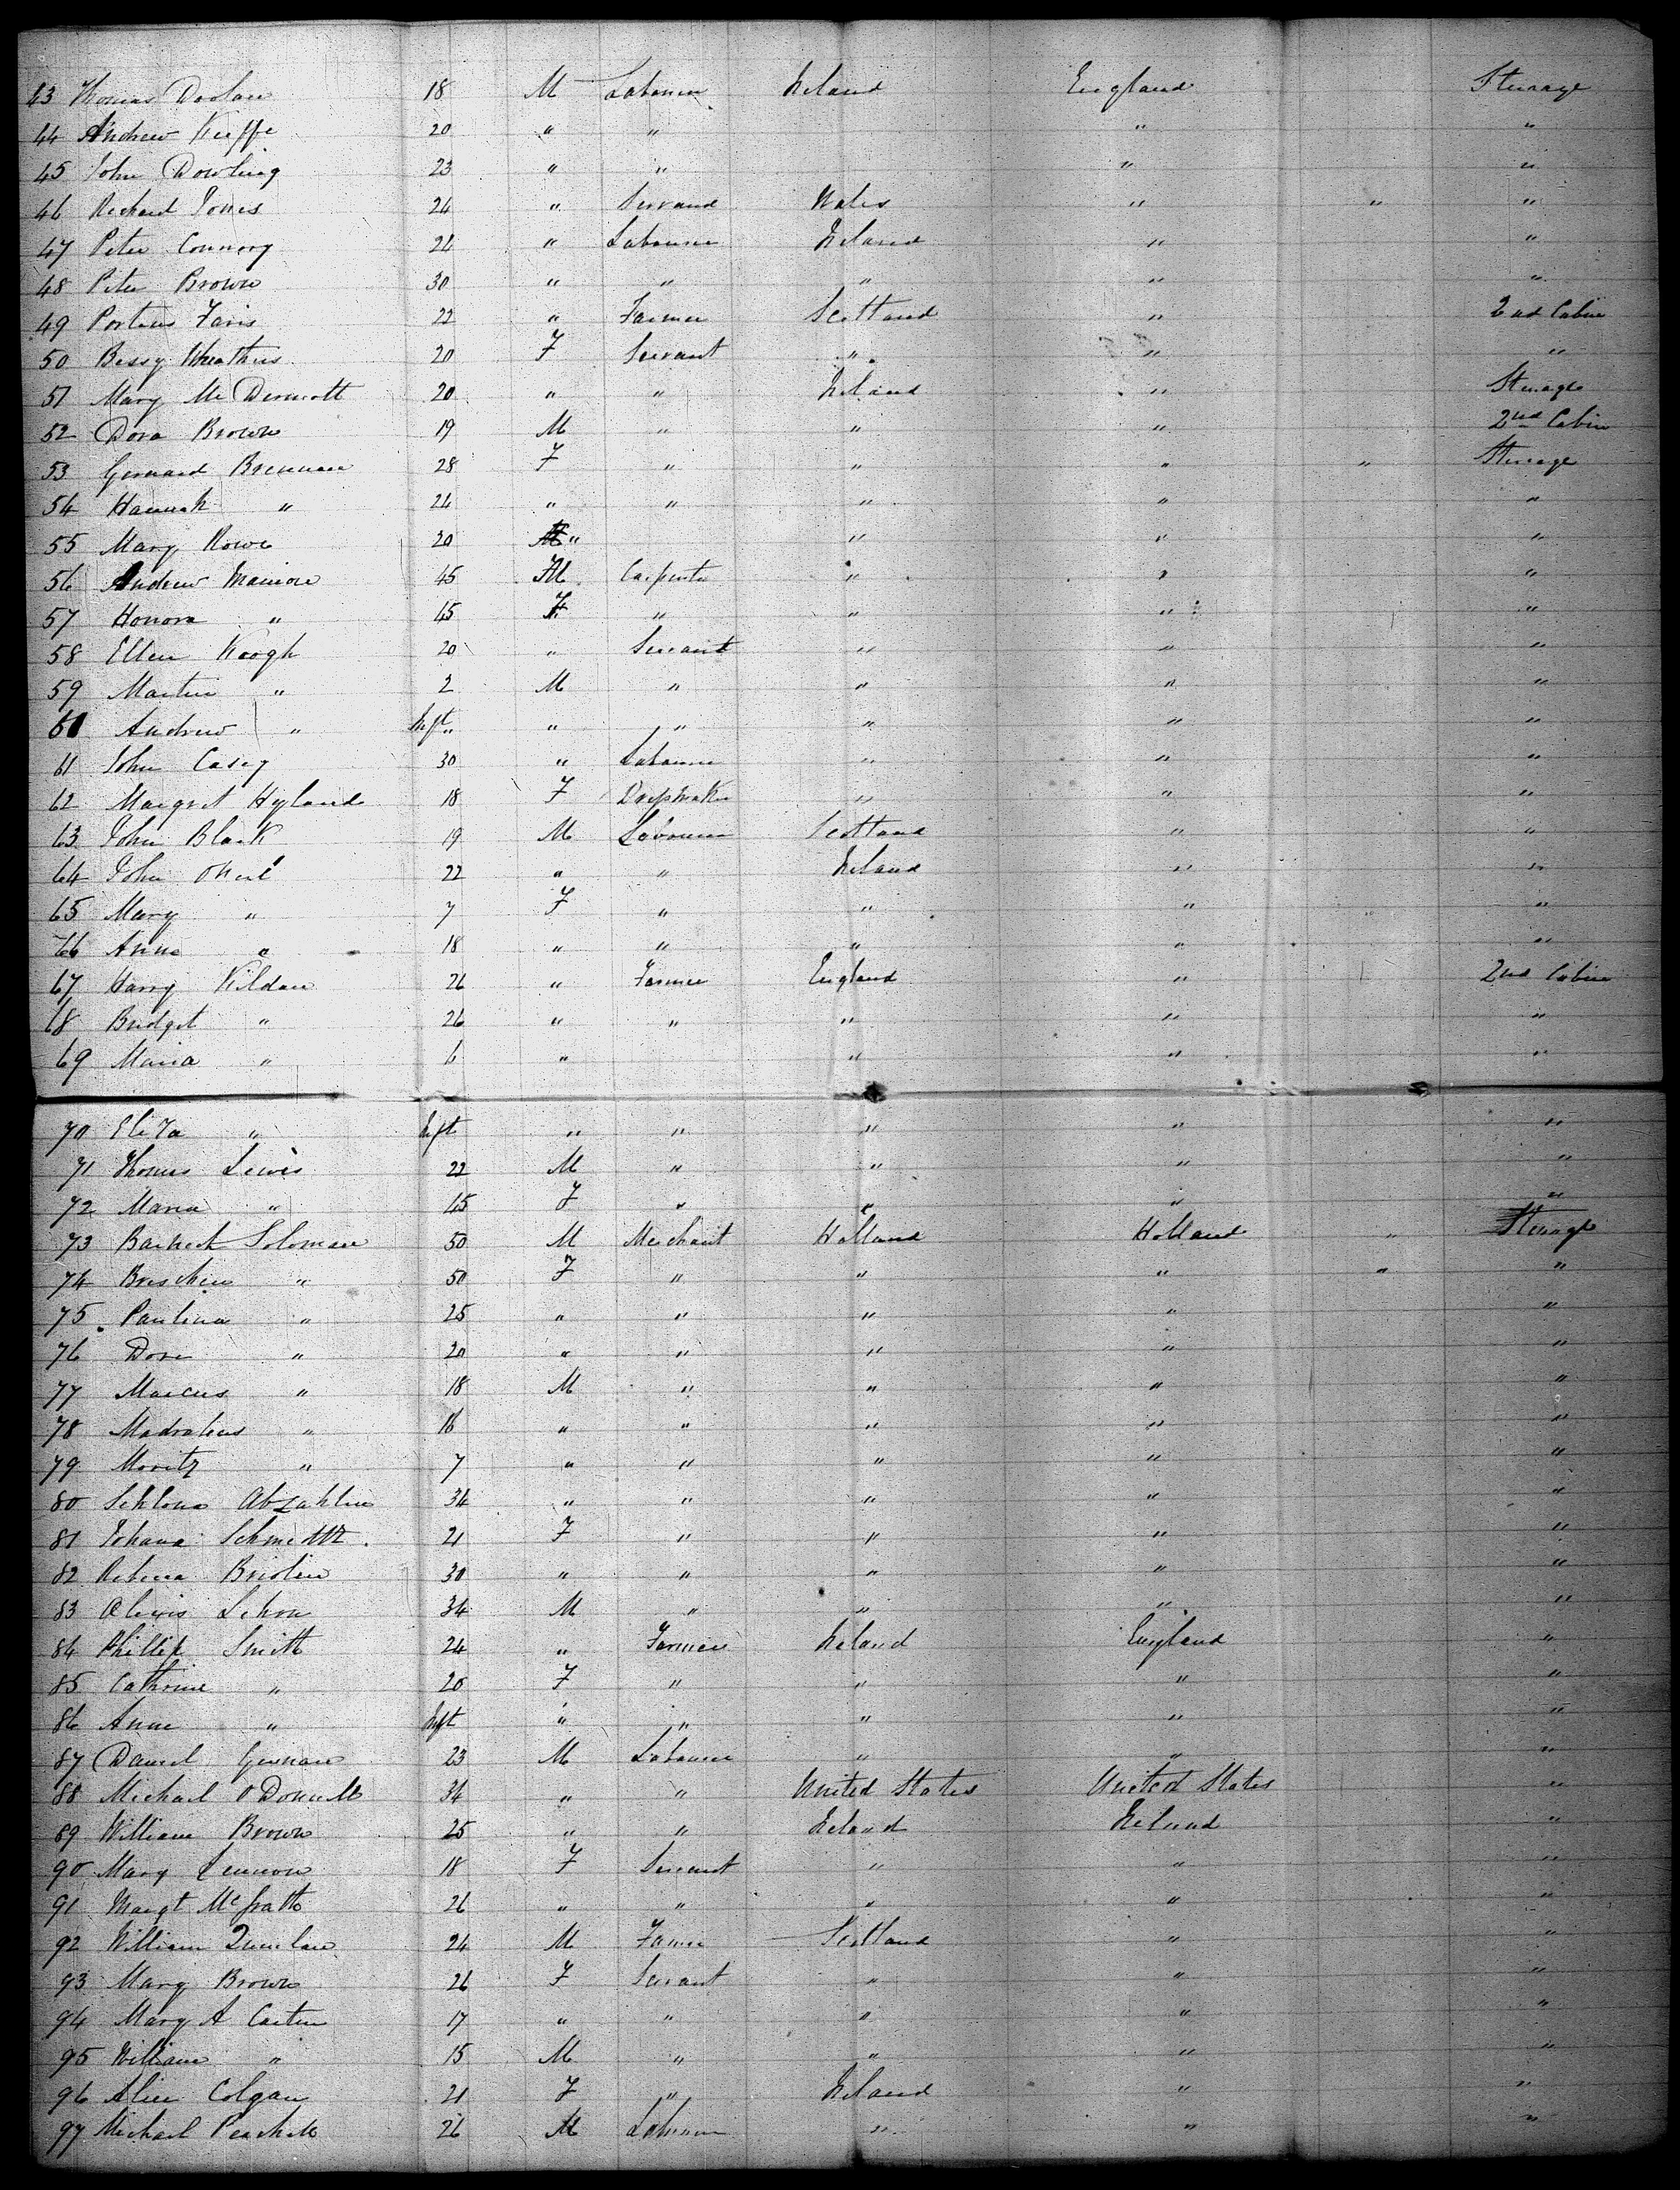 43 Thomas Doolan 18 M Labourer Ireland England Steerage
44 Andrew Keeffe 20 " " " "
45 John Dowling 23 " " " "
46 Richard Jones 24 " Servand Wales " " "
47 Peter Connory 24 " Labourer Ireland " "
48 Peter Brown 30 " " " " "
49 Porteus Faris 22 " Farmer Scottland " 2nd Cabin
50 Bessy 20 F Servant " " "
51 Mary McDermott 20 " " Ireland " Steerage
52 Dora Brown 19 M " " " 2nd Cabin
53 Gernard Brennan 28 F " " " " Steerage
54 Hannah " 24 " " " " "
55 Mary Rowe 20 " " " "
56 Andrew 45 M Carpenter " " "
57 Honora " 45 F " " " "
58 Ellen Keogh 20 " Servant " " "
59 Martin " 2 M " " " "
60 Andrew " Inft " " " " "
61 John Casey 30 " Labourer " " "
62 Margret Hyland 18 F Dressmaker " " "
63 John Black 19 M Labourer Scottland " "
64 John ONeil 22 " " Ireland " "
65 Mary " 7 F " " " "
66 Anne " 18 " " " " "
67 Harry Kildare 26 " Farmer England " 2nd Cabin
68 Bridget " 26 " " " " "
69 Maria " 6 " " " "
70 Eliza " Inft " " " " "
71 Thomas Lewis 22 M " " " "
72 Maria " 45 F " " " "
73 Solomon 50 M Merchant Holland Holland " Steerage
74 " 50 F " " " " "
75 Paulina " 25 " " " " "
76 Dora " 20 " " " " "
77 Marcus " 18 M " " " "
78 " 16 " " " " "
79 Moritz " 7 " " " " "
80 34 " " " " "
81 Johana 21 F " " " "
82 Rebecca 30 " " " " "
83 Alexis 34 M " " " "
84 Phillip Smith 24 " Farmer Ireland England "
85 Cathrine " 20 F " " " "
86 Anne " Inft " " " " "
87 Daniel 23 M Labourer " " "
88 Michael ODonnell 34 " " United States United States "
89 William Brown 25 " " Ireland Ireland "
90 Mary Lennon 18 F Servant " " "
91 Margt McGrath 26 " " " " "
92 William Quinlan 24 M Farmer Scottland " "
93 Mary Brown 26 F Servant " " "
94 Mary A Carten 17 " " " " "
95 William " 15 M " " " "
96 Alice Colgan 21 F " Ireland " "
97 Michael 26 M Labourer " " "